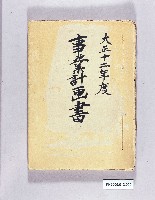 大正十二年度
事業計画書